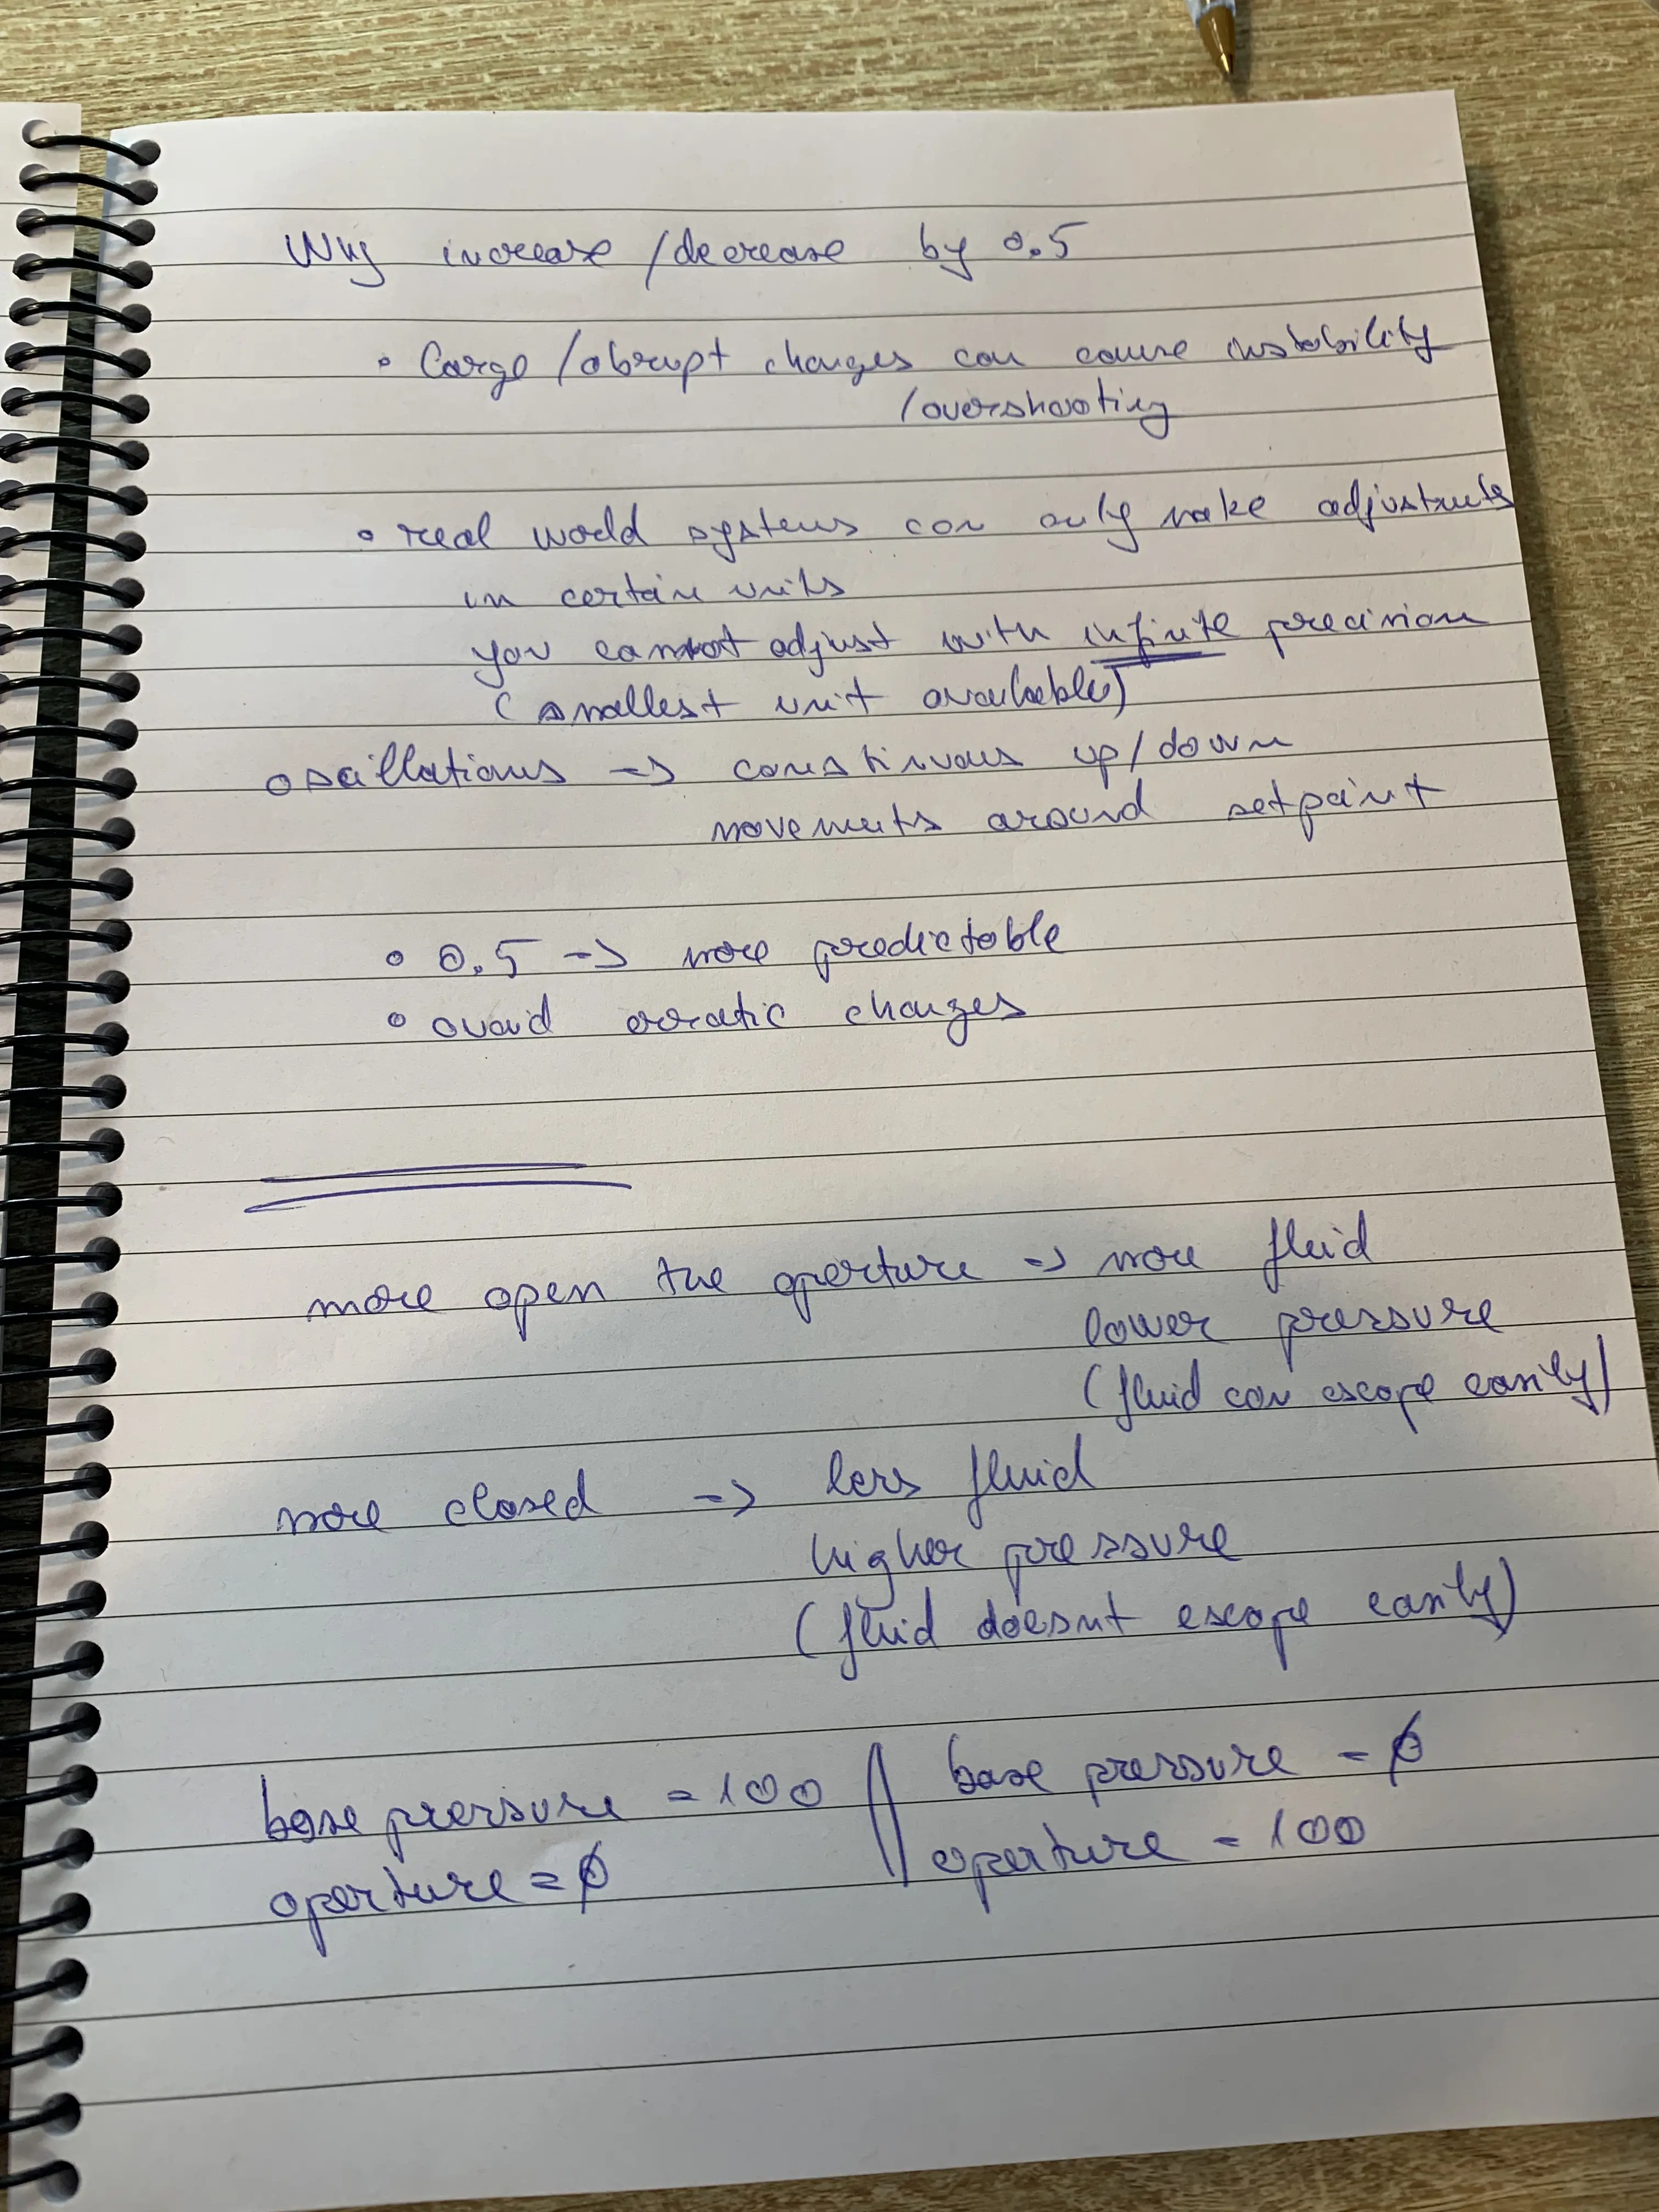 Why increase/decrease by 0.5
• Large/abrupt changes can cause instability
/overshooting
• real world systems can only make adjustments
in certain units
you cannot adjust with infinite precision
(smallest unit available)
oscillations -> continuous up/down
movements around setpoint
• 0.5 -> more predictable
• avoid erratic changes
more open the aperture -> more fluid
lower pressure
(fluid can escape easily)
more closed -> less fluid
higher pressure
(fluid doesnt escape easily)
base pressure = 100 || base pressure = 0
aperture = 0 aperture = 100